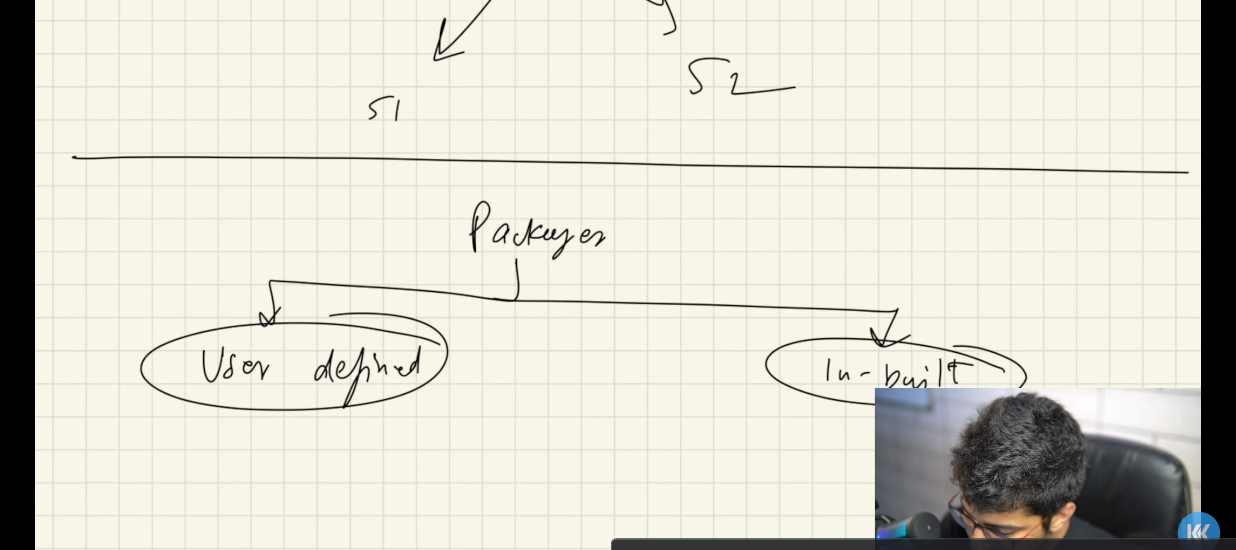 S1
S2
Packages
User defined
In-built